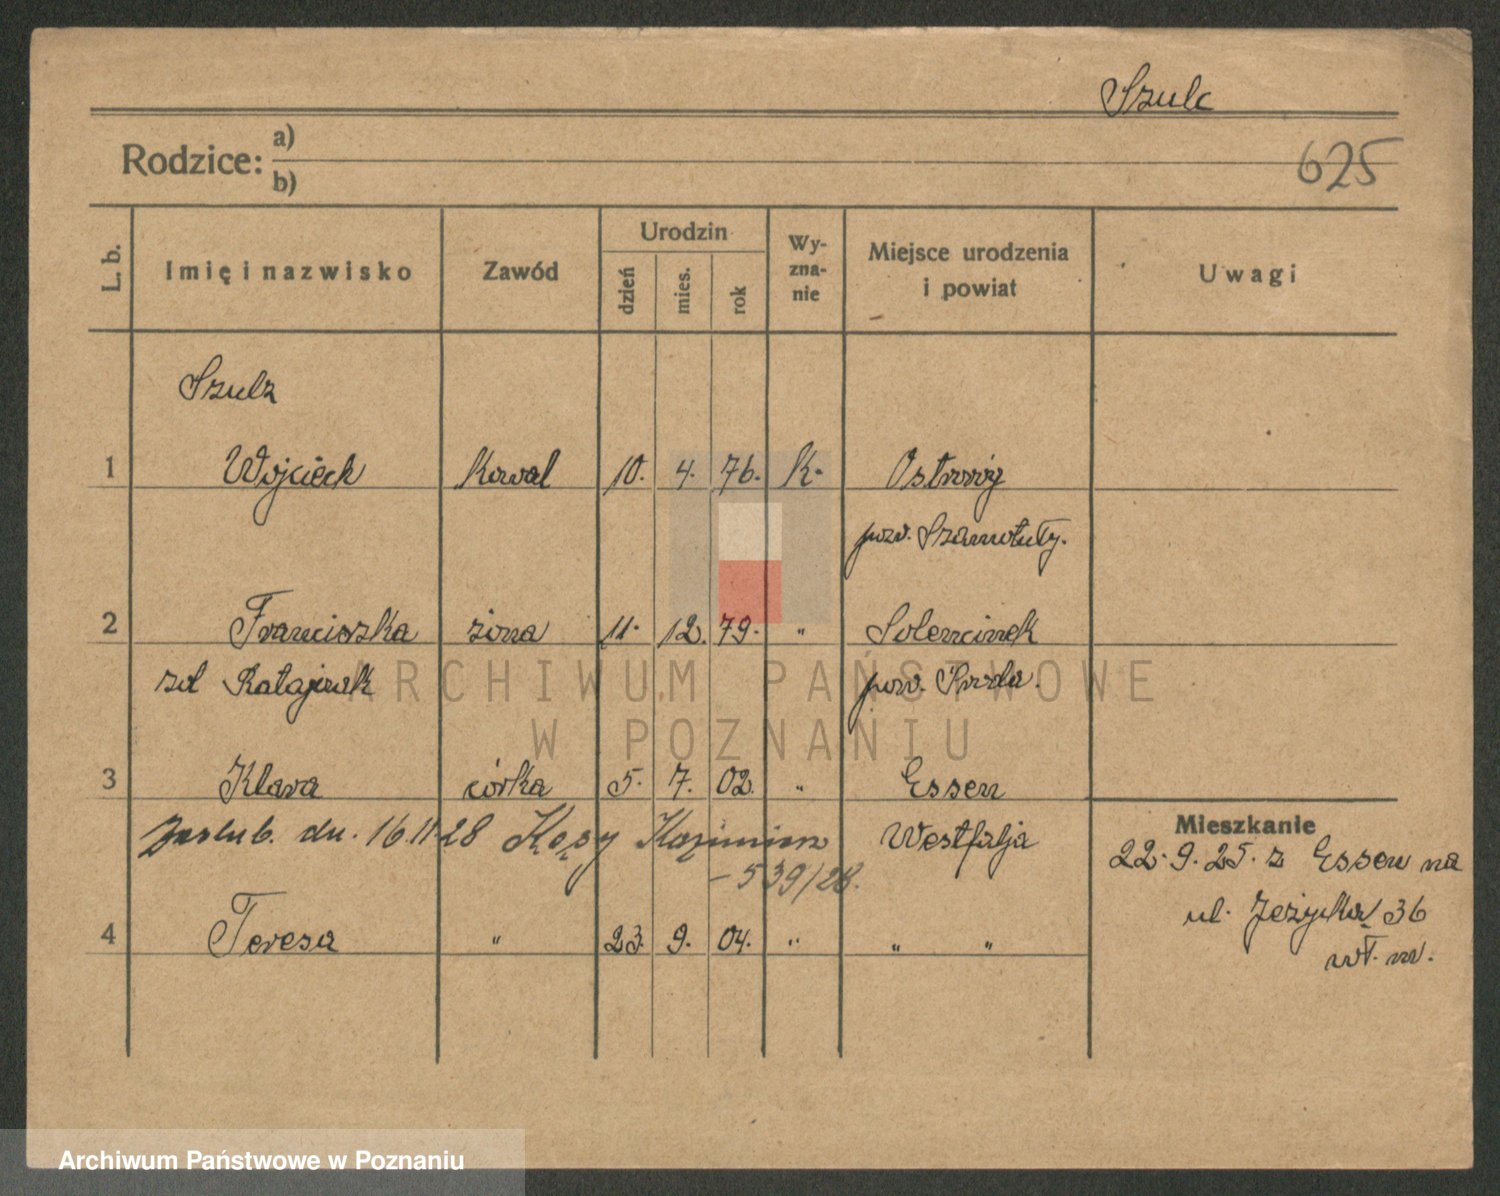 Szulc
Rodzice: a)
b)
625
L. b.
Imię i nazwisko
Zawód
Urodzin
dzień
mies.
rok
Wy-
zna-
nie
Miejsce urodzenia
i powiat
Uwagi
Szulz
1 Wojciech Kowal 10. 4. 76. K. Ostroróg
pow. Szamotuły.
2 Franciszka żona 11. 12. 79. " Solemcinek
zd Ratajczak pow. Środa.
ARCHIWUM PAŃSTWOWE
W POZNANIU
3 Klara córka 5. 7. 02. " Essen
zaślub. dn. 16.11.28 Kęsy Kazimierz Westfalja
- 539/28.
Mieszkanie
22.9.25. z Essen na
ul. Jeżycka 36
wł. m.
4 Teresa " 23. 9. 04. " " "
Archiwum Państwowe w Poznaniu